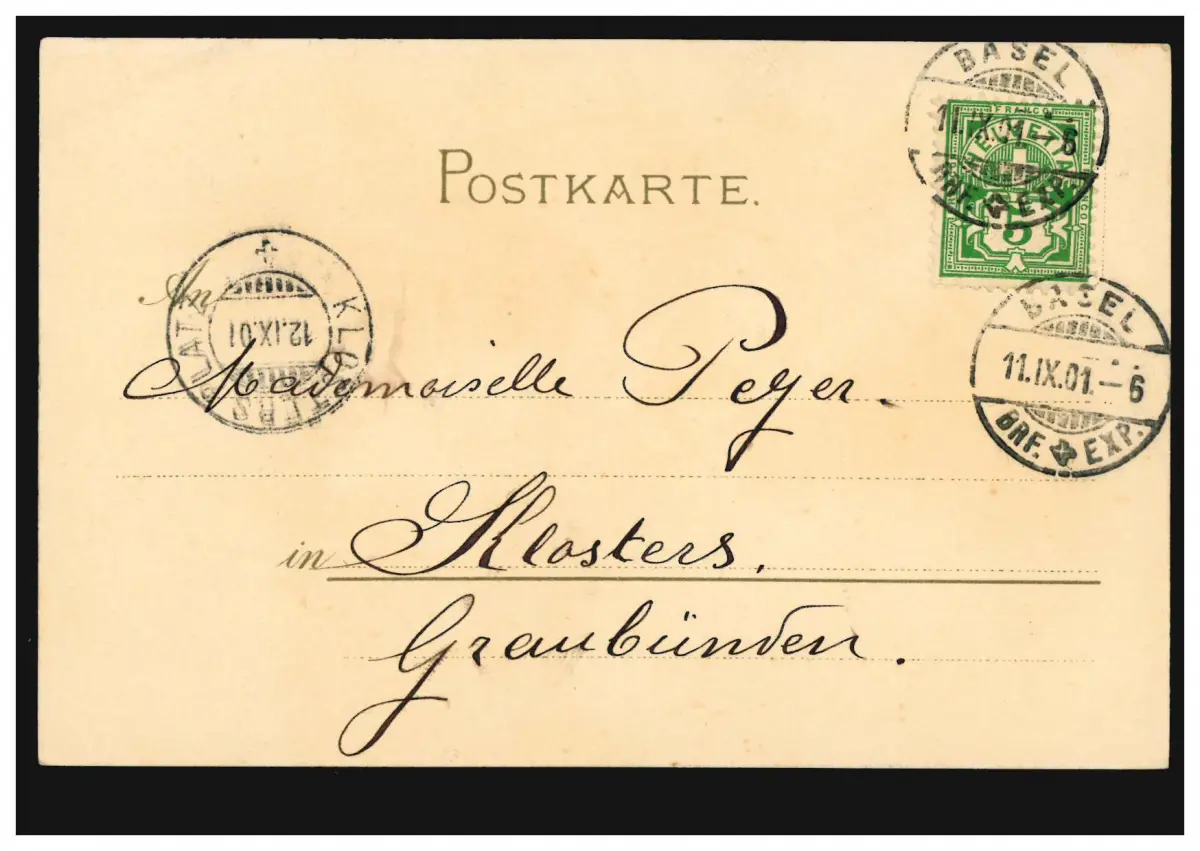 BASEL
11.IX.01.-6
BRF. EXP.
FRANCO
HELVETIA
FRANCO
5
POSTKARTE.
KLOSTERS PLATZ
12.IX.01
An
Mademoiselle Peyer.
BASEL
11.IX.01.-6
BRF. EXP.
in Klosters.
Graubünden.